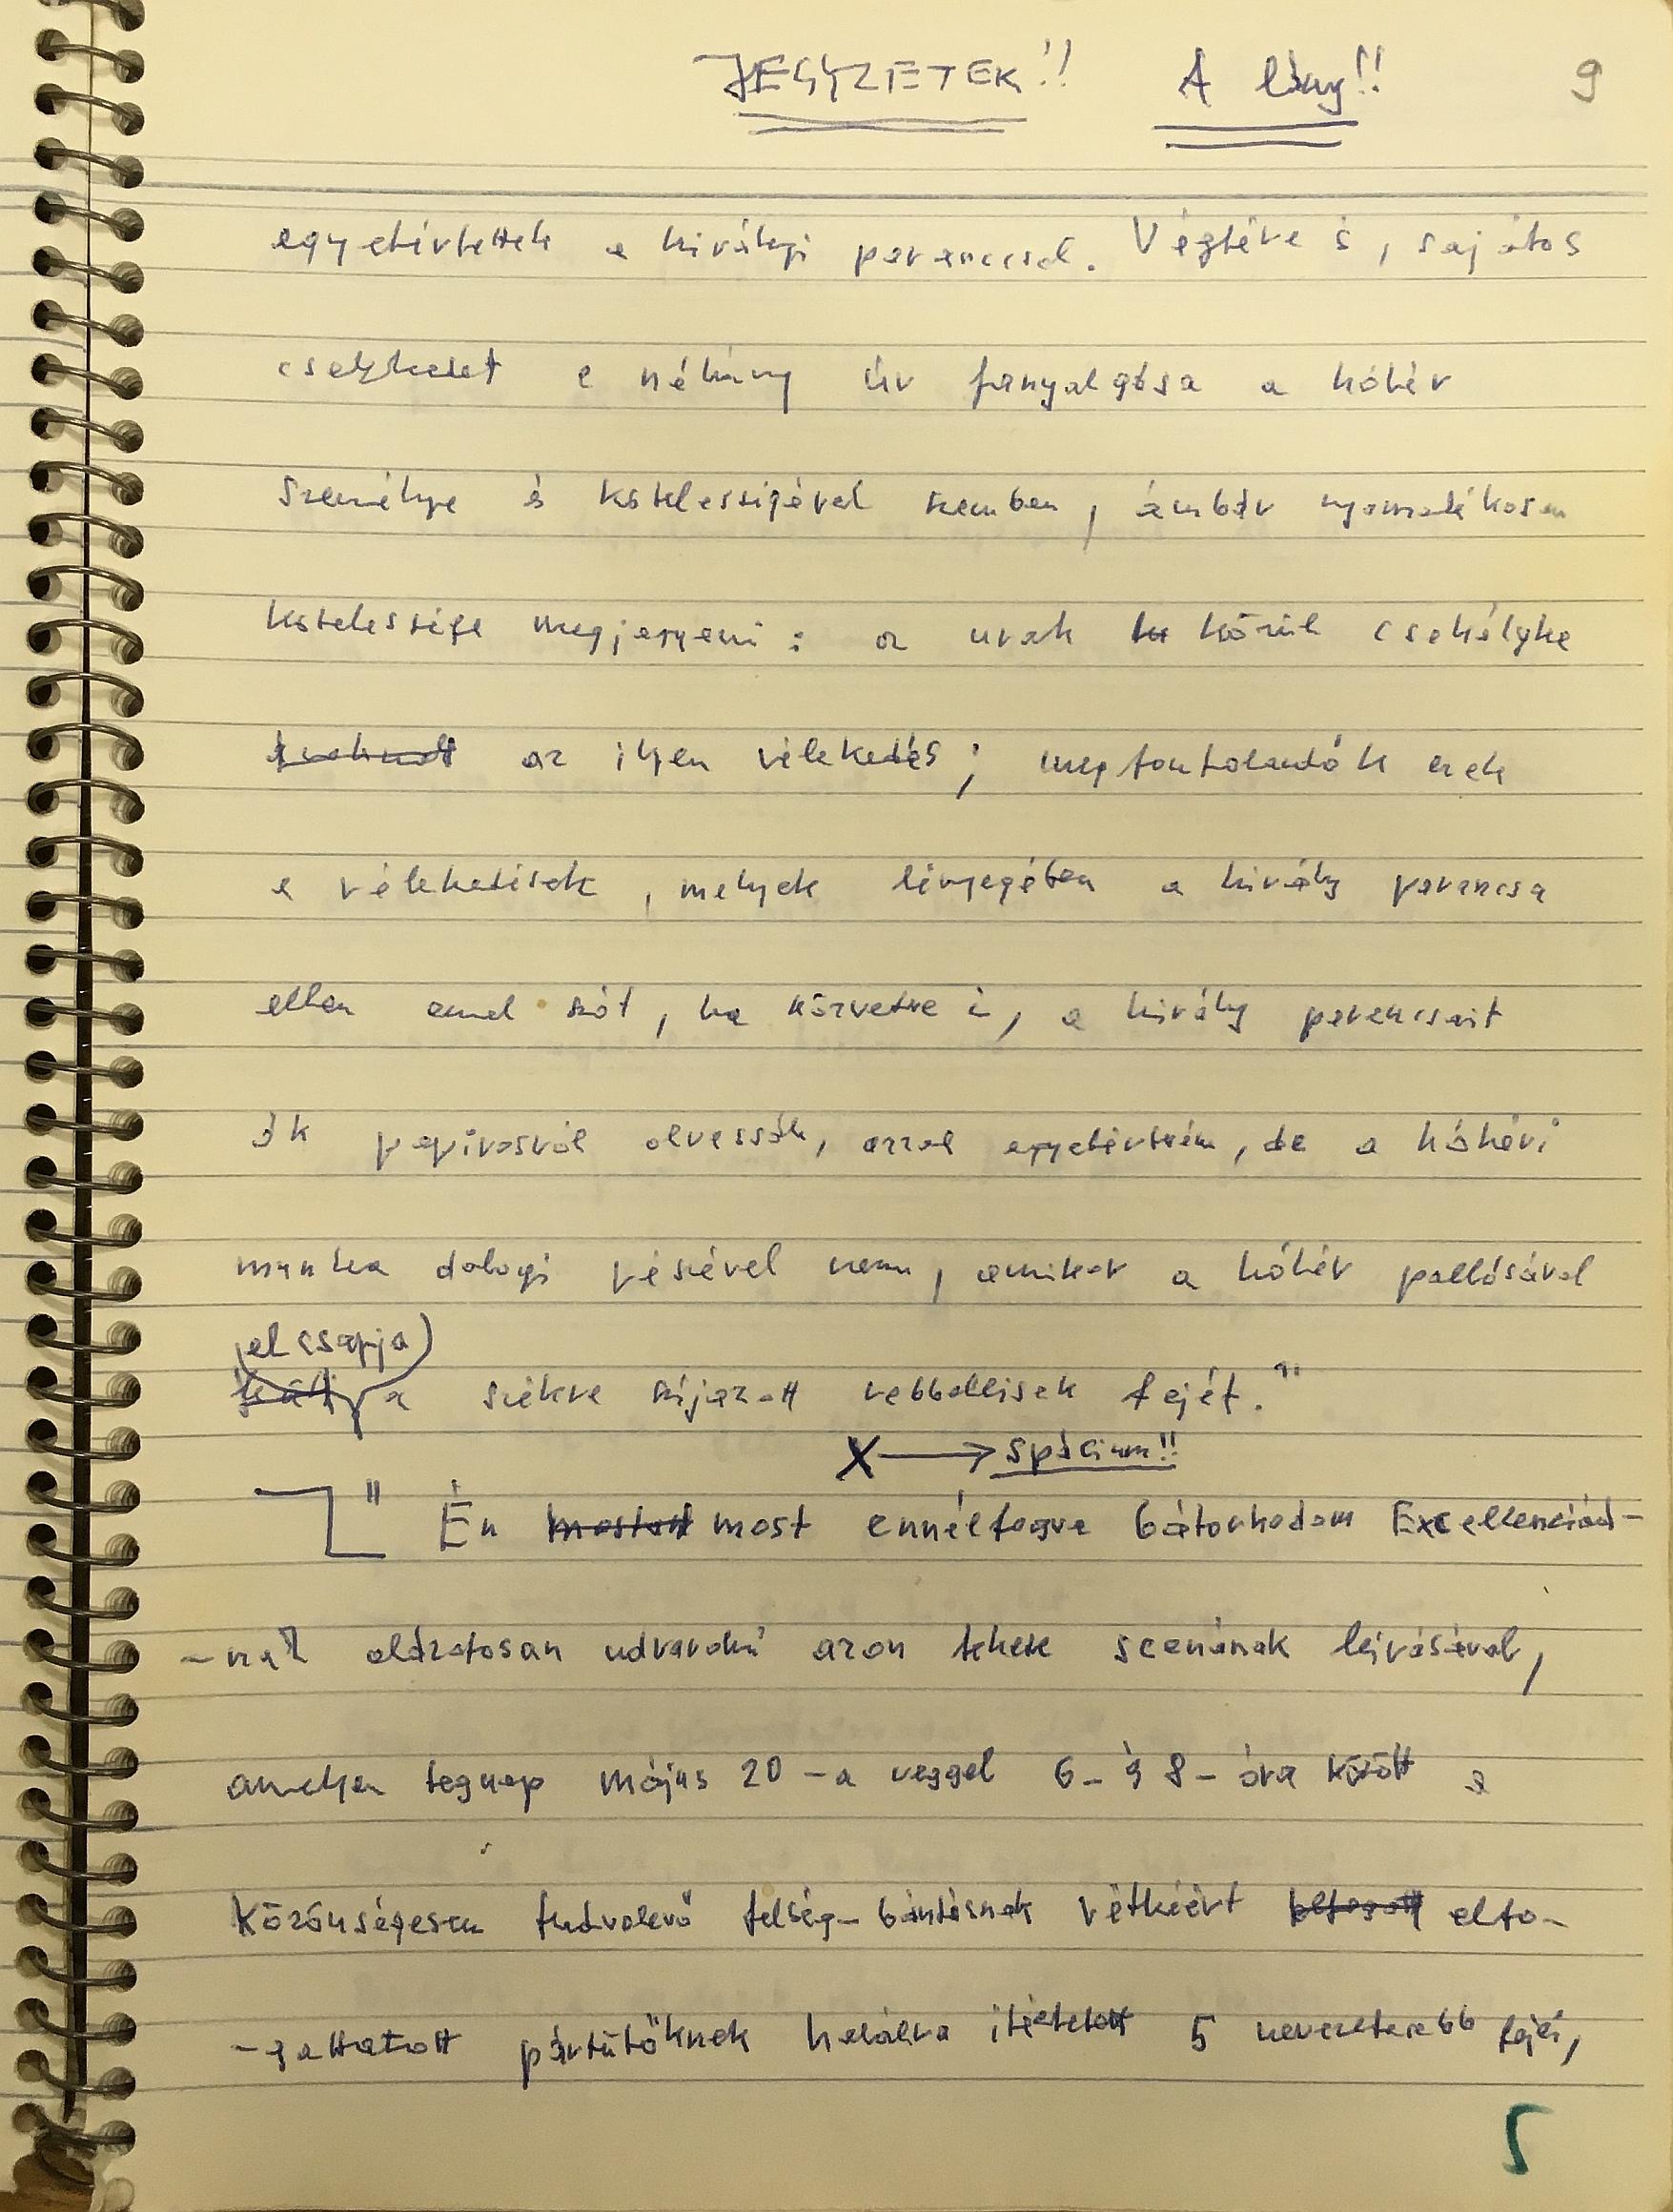 JEGYZETEK!! A lány!! 9
egyetértettek a királyi paranccsal. Végtére is, sajátos
cselekedet e néhány úr fanyalgása a hóhér
személye és kötelességével szemben, ámbár nyomatékosan
kötelessége megjegyezni: az urak körül csekélyke
az ilyen vélekedés; megfontolandók ezek
a vélekedések, melyek lényegében a király parancsa
ellen emel szót, ha közvetve is, a király parancsait
ők papirosról olvassák, azzal egyetértvén, de a hóhéri
munka dologi részével nem, amikor a hóhér pallósával
elcsapja
a székre szíjazott rebbellisek fejét."
X → spácium!!
"Én most ennélfogva bátorkodom Excellenciád-
-nak alázatosan udvarolni azon fekete scenának leírásával,
amelyen tegnap május 20-a reggel 6- és 8-óra között a
közönségesen tudvalevő felség-bántásnak vétkéért elfo-
-gattatott pártütőknek halálra ítéltetett 5 nevezetesebb fejei,
5